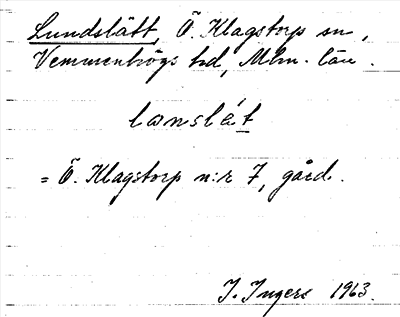 Lundslätt, Ö. Klagstorps sn,
Vemmenhögs hd, Mlm. län.
lɑnslɛ́t
= Ö. Klagstorp n:r 7, gård.
I. Ingers 1963.